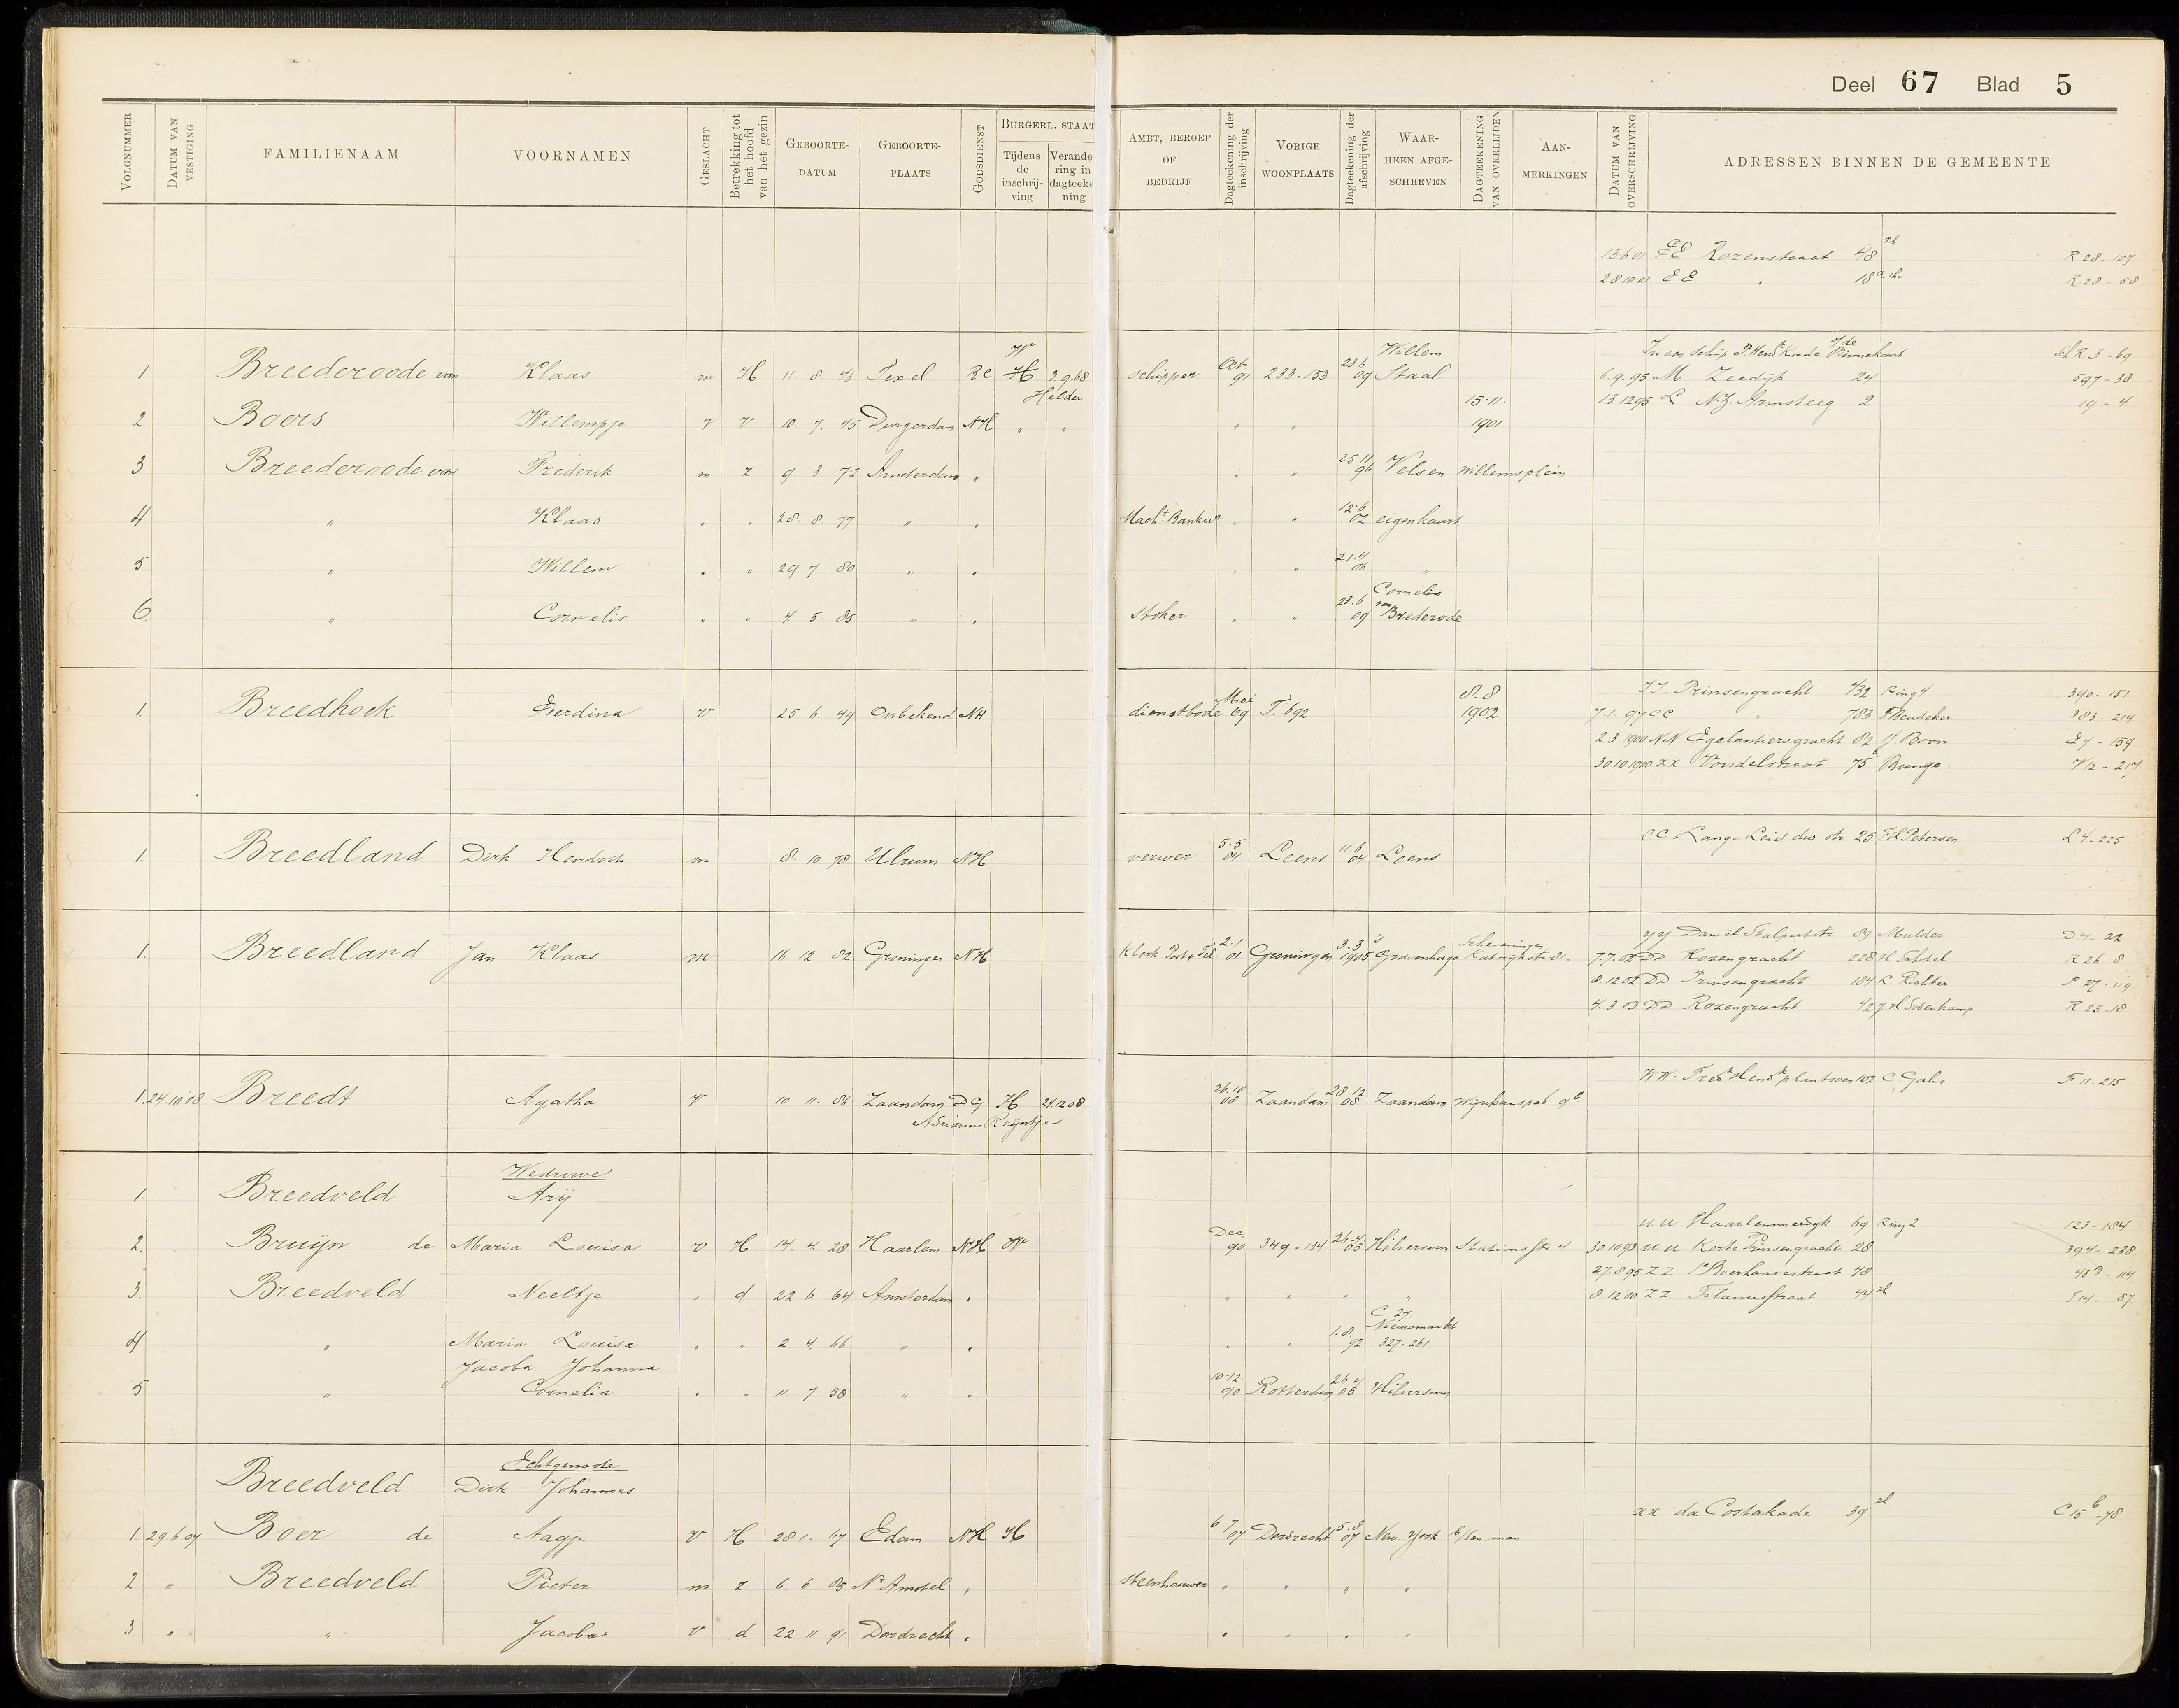 Deel 67 Blad 5
VOLGNUMMER DATUM VAN VESTIGING FAMILIENAAM VOORNAMEN GESLACHT Betrekking tot het hoofd van het gezin GEBOORTE-DATUM GEBOORTE-PLAATS GODSDIENST BURGERL. STAAT Tijdens de inschrijving Verandering in dagteekening AMBT, BEROEP OF BEDRIJF Dagteekening der inschrijving VORIGE WOONPLAATS Dagteekening der afschrijving WAARHEEN AFGESCHREVEN DAGTEEKENING VAN OVERLIJDEN AANMERKINGEN DATUM VAN OVERSCHRIJVING ADRESSEN BINNEN DE GEMEENTE
13.6.01 EE Rozenstraat 48 R 28-107
28.10.01 EE " 18 R 28-58
In een schip P. Hend Kade R 3-69
1 Breederoode van Klaas m H 11 8 43 Texel RC W H 3.9.68 Helder schipper Oct 91 233-153 23 6 09 Willem Staal 6.9.95 M Zeedijk 24 597-38
13.12.95 L N.Z. Armsteeg 2 19-4
2 Boers Willempje v v 10. 7. 45 Durgerdam NH " " " " 15.11. 1901
3 Breederoode van Frederik m z 9. 3 72 Amsterdam " " " 25 11 96 Velsen Willemsplein
4 " Klaas " " 28. 8 77 " " Mach. Bankw " " 12.6 02 eigen kaart
5 " Willem " " 29 7 80 " " " " 21.4 06 "
6. " Cornelis " " 4. 5. 85 " " stoker " " 23.6 09 Cornelis van Brederode
JJ. Prinsengracht 432 Ring 4 390-151
1. Breedhoek Ferdina v 25 6. 49 Onbekend NH dienstbode Mei 69 T. 692 8.8 1902 7.1.97 CC " 783 F Beudeker 383-214
2.3.1900 NN Egelantiersgracht 82 J. Boon E7-159
30.10.1900 XX Vondelstraat 75 Bunge V12-217
CC Lange Leid. dw str 25 Petersen L 4-225
1. Breedland Derk Hendrik m 8. 10 78 Ulrum NH verwer 5.5 04 Leens 11 6 04 Leens
YY Daniel Stalpertstr 89 Mulder D 4-22
1. Breedland Jan Klaas m 16 12 82 Groningen NH Klerk Post & Tel. 2.1 01 Groningen 3.3 1905 's Gravenhage Scheveningen Katwijkstr 7.7.02 DD Rozengracht 228 R 26 8
8.12.02 DD Prinsengracht 184 R. Richter P 27-119
4.3.03 DD Rozengracht 42 R 25-18
WW. Fred Hend plantsoen 102 C Gales F 11-215
1. 24.10.08 Breedt Agatha v 10 11. 86 Zaandam DG H 24.12.08 Adrianus Reijntjes 26.10 08 Zaandam 28.12 08 Zaandam
1. Breedveld Weduwe Arij
UU Haarlemmerdijk 69 Ring 2 123-184
2. Bruijn de Maria Louisa v H 14. 4. 28 Haarlem NH W Dec 90 349-134 26.4. 05 Hilversum Stations str 4 30.10.93 UU Korte Prinsengracht 28 394-238
27.8.95 ZZ 1e Boerhaavestraat 48
3. Breedveld Neeltje " d 22 6 64 Amsterdam " " " " " 8.12.00 ZZ straat 44 514-87
4 " Maria Louisa " " 2 4. 66 " " " " 1.8. 92 C 27. Nieuwmarkt 327-261
5 " Jacoba Johanna Cornelia " " 11 7 58 " " 10.12. 90 Rotterdam 26 4 05 Hilversum
Echtgenoote
Breedveld Dirk Johannes
XX da Costakade 39 C 15 b-78
1. 29 6 07 Boer de Aagje v H 28 1. 67 Edam NH H 6.7 07 Dordrecht 5.8 07 New. York man
2 " Breedveld Pieter m z 6. 6 85 Nr Amstel " steenhouwer " " " "
3 " " Jacoba v d 22 11 91 Dordrecht " " " " "